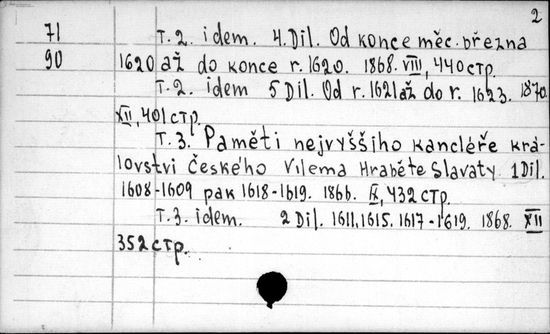 2
71 T. 2. idem. 4. Díl. Od konce měc. března
90 1620 až do konce r. 1620. 1868. VIII, 440 стр.
T. 2. idem 5 Díl. Od r. 1621 až do r. 1623. 1870.
XII, 401 стр.
T. 3. Paměti nejvyššiho kancléře krá-
lovstvi českého Vilema Hraběte Slavaty. 1 Díl.
1608-1609 pak 1618-1619. 1866. IX, 432 стр.
T. 3. idem. 2 Díl. 1611, 1615. 1617-1619. 1868. XII
352 стр.